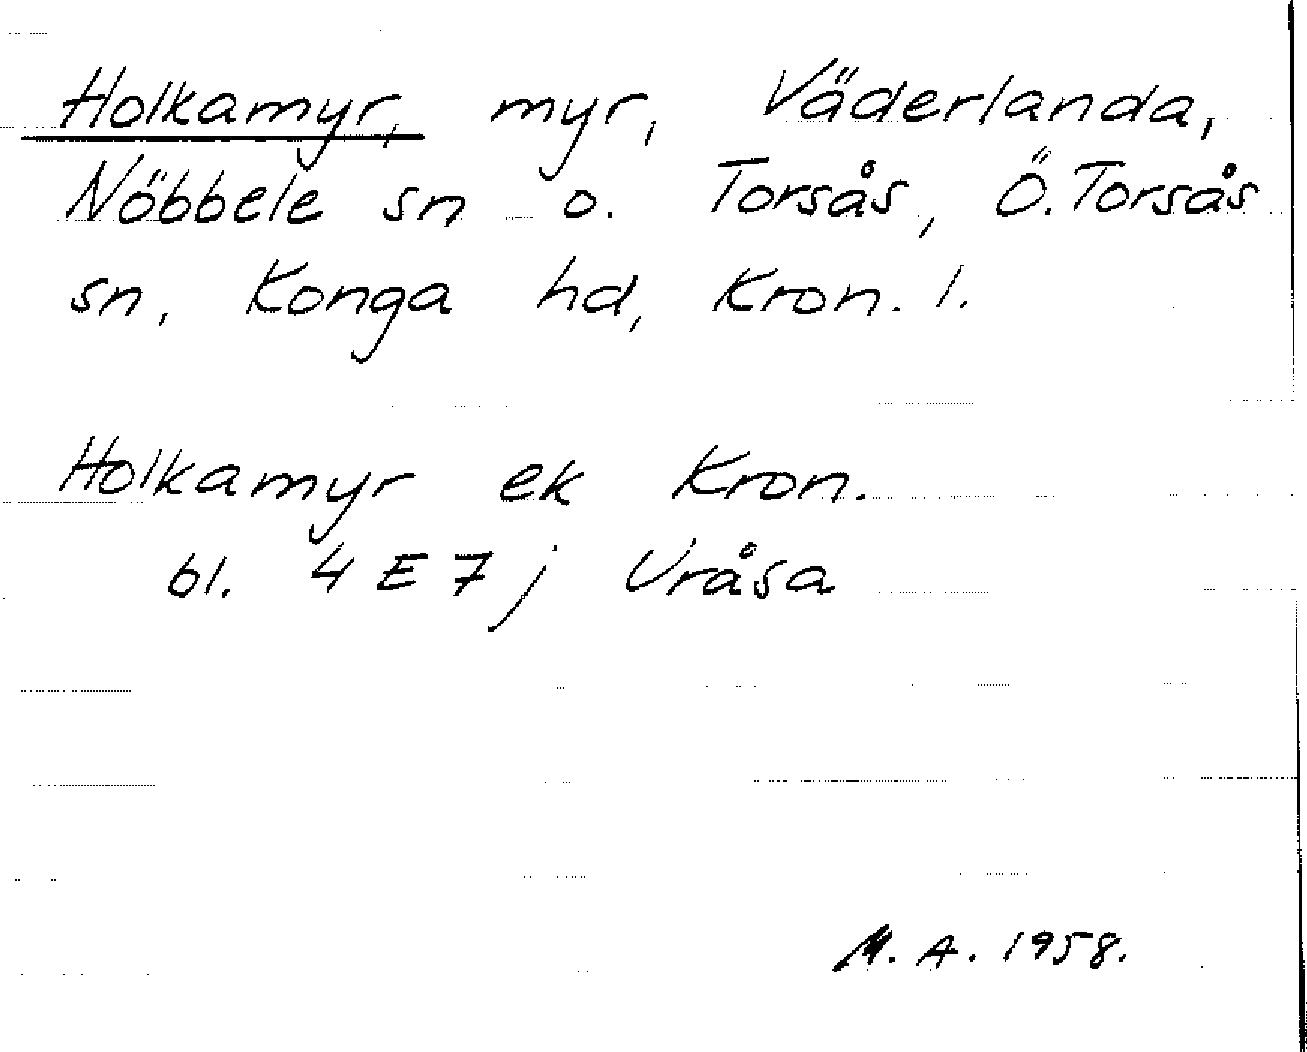 Holkamyr, myr, Väderlanda,
Nöbbele sn o. Torsås, Ö. Torsås
sn, Konga hd, Kron. l.
Holkamyr ek Kron.
bl. 4 E 7 j Uråsa
M. A. 1958.